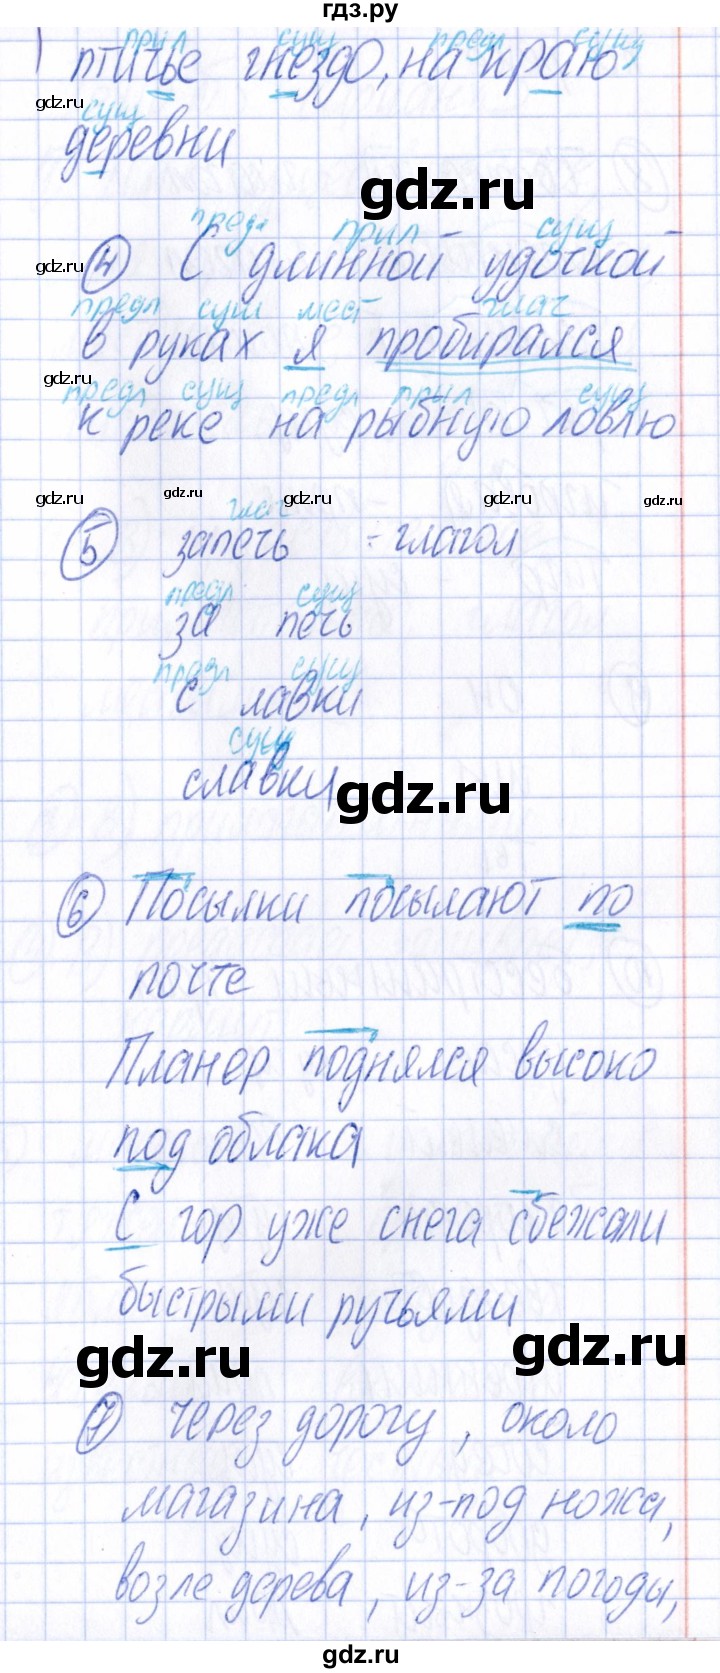 гдз.ру
прил сущ предл сущ
птичье гнездо, на краю
gdz.ru gdz.ru gdz.ru gdz.ru
сущ
деревни
gdz.ru
предл прил сущ
gdz.ru 4 С длинной удочкой
предл сущ мест глаг
в руках я пробирался
gdz.ru
предл сущ предл прил сущ
к реке на рыбную ловлю
gdz.ru gdz.ru gdz.ru gdz.ru gdz.ru
глаг
5 запечь - глагол
предл сущ
за печь
предл сущ
с лавки
сущ
славки
gdz.ru
6 Посылки посылают по
почте
Планер поднялся высоко
под облака
С гор уже снега сбежали
быстрыми ручьями
gdz.ru gdz.ru
7 через дорогу, около
магазина, из-под ножа,
возле дерева, из-за погоды,
gdz.ru